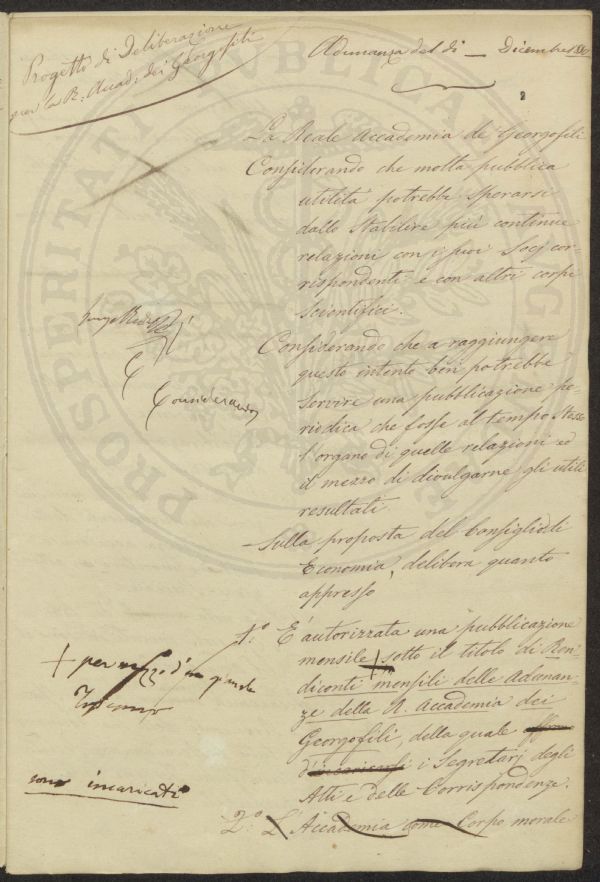 Progetto di Deliberazione
per la R: Accad: dei Georgofili
Adunanza del dì _ Dicembre
2
La Reale Accademia de Georgofili
Considerando che molta pubblica
utilità potrebbe sperarsi
dallo stabilire più continue
relazioni con i suoi Socj cor
rispondenti e con altri corpi
scientifici.
Considerando che a raggiungere
questo intento ben potrebbe
servire una pubblicazione pe-
riodica che fosse al tempo stesso
l'organo di quelle relazioni ed
il mezzo di divulgarne gli utili
resultati
Sulla proposta del Consiglio di
Economia, delibera quanto
appresso
1º: E' autorizzata una pubblicazione
mensile + sotto il titolo di Ren
diconti mensili delle Adunan-
ze della R. Accademia dei
Georgofili, della quale
i Segretarj degli
Atti e delle Corrispondenze.
2º: L' Accademia come Corpo morale
Considerando
+ per mezzo d'un giornale
sono incaricati
PROSPERITATI PUBLICAE